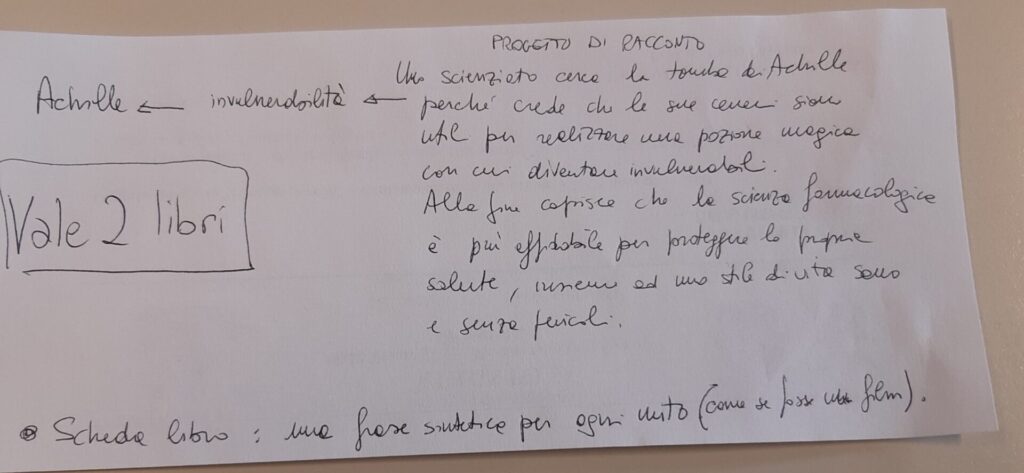 PROGETTO DI RACCONTO
Achille ← invulnerabilità ←
Uno scienziato cerca la tomba di Achille
perché crede che le sue ceneri siano
utili per realizzare una pozione magica
con cui diventare invulnerabili.
Alla fine capisce che la scienza farmacologica
è più affidabile per proteggere la propria
salute, insieme ad uno stile di vita sano
e senza pericoli.
Vale 2 libri
Scheda libro : una frase sintetica per ogni mito (come se fosse un film).